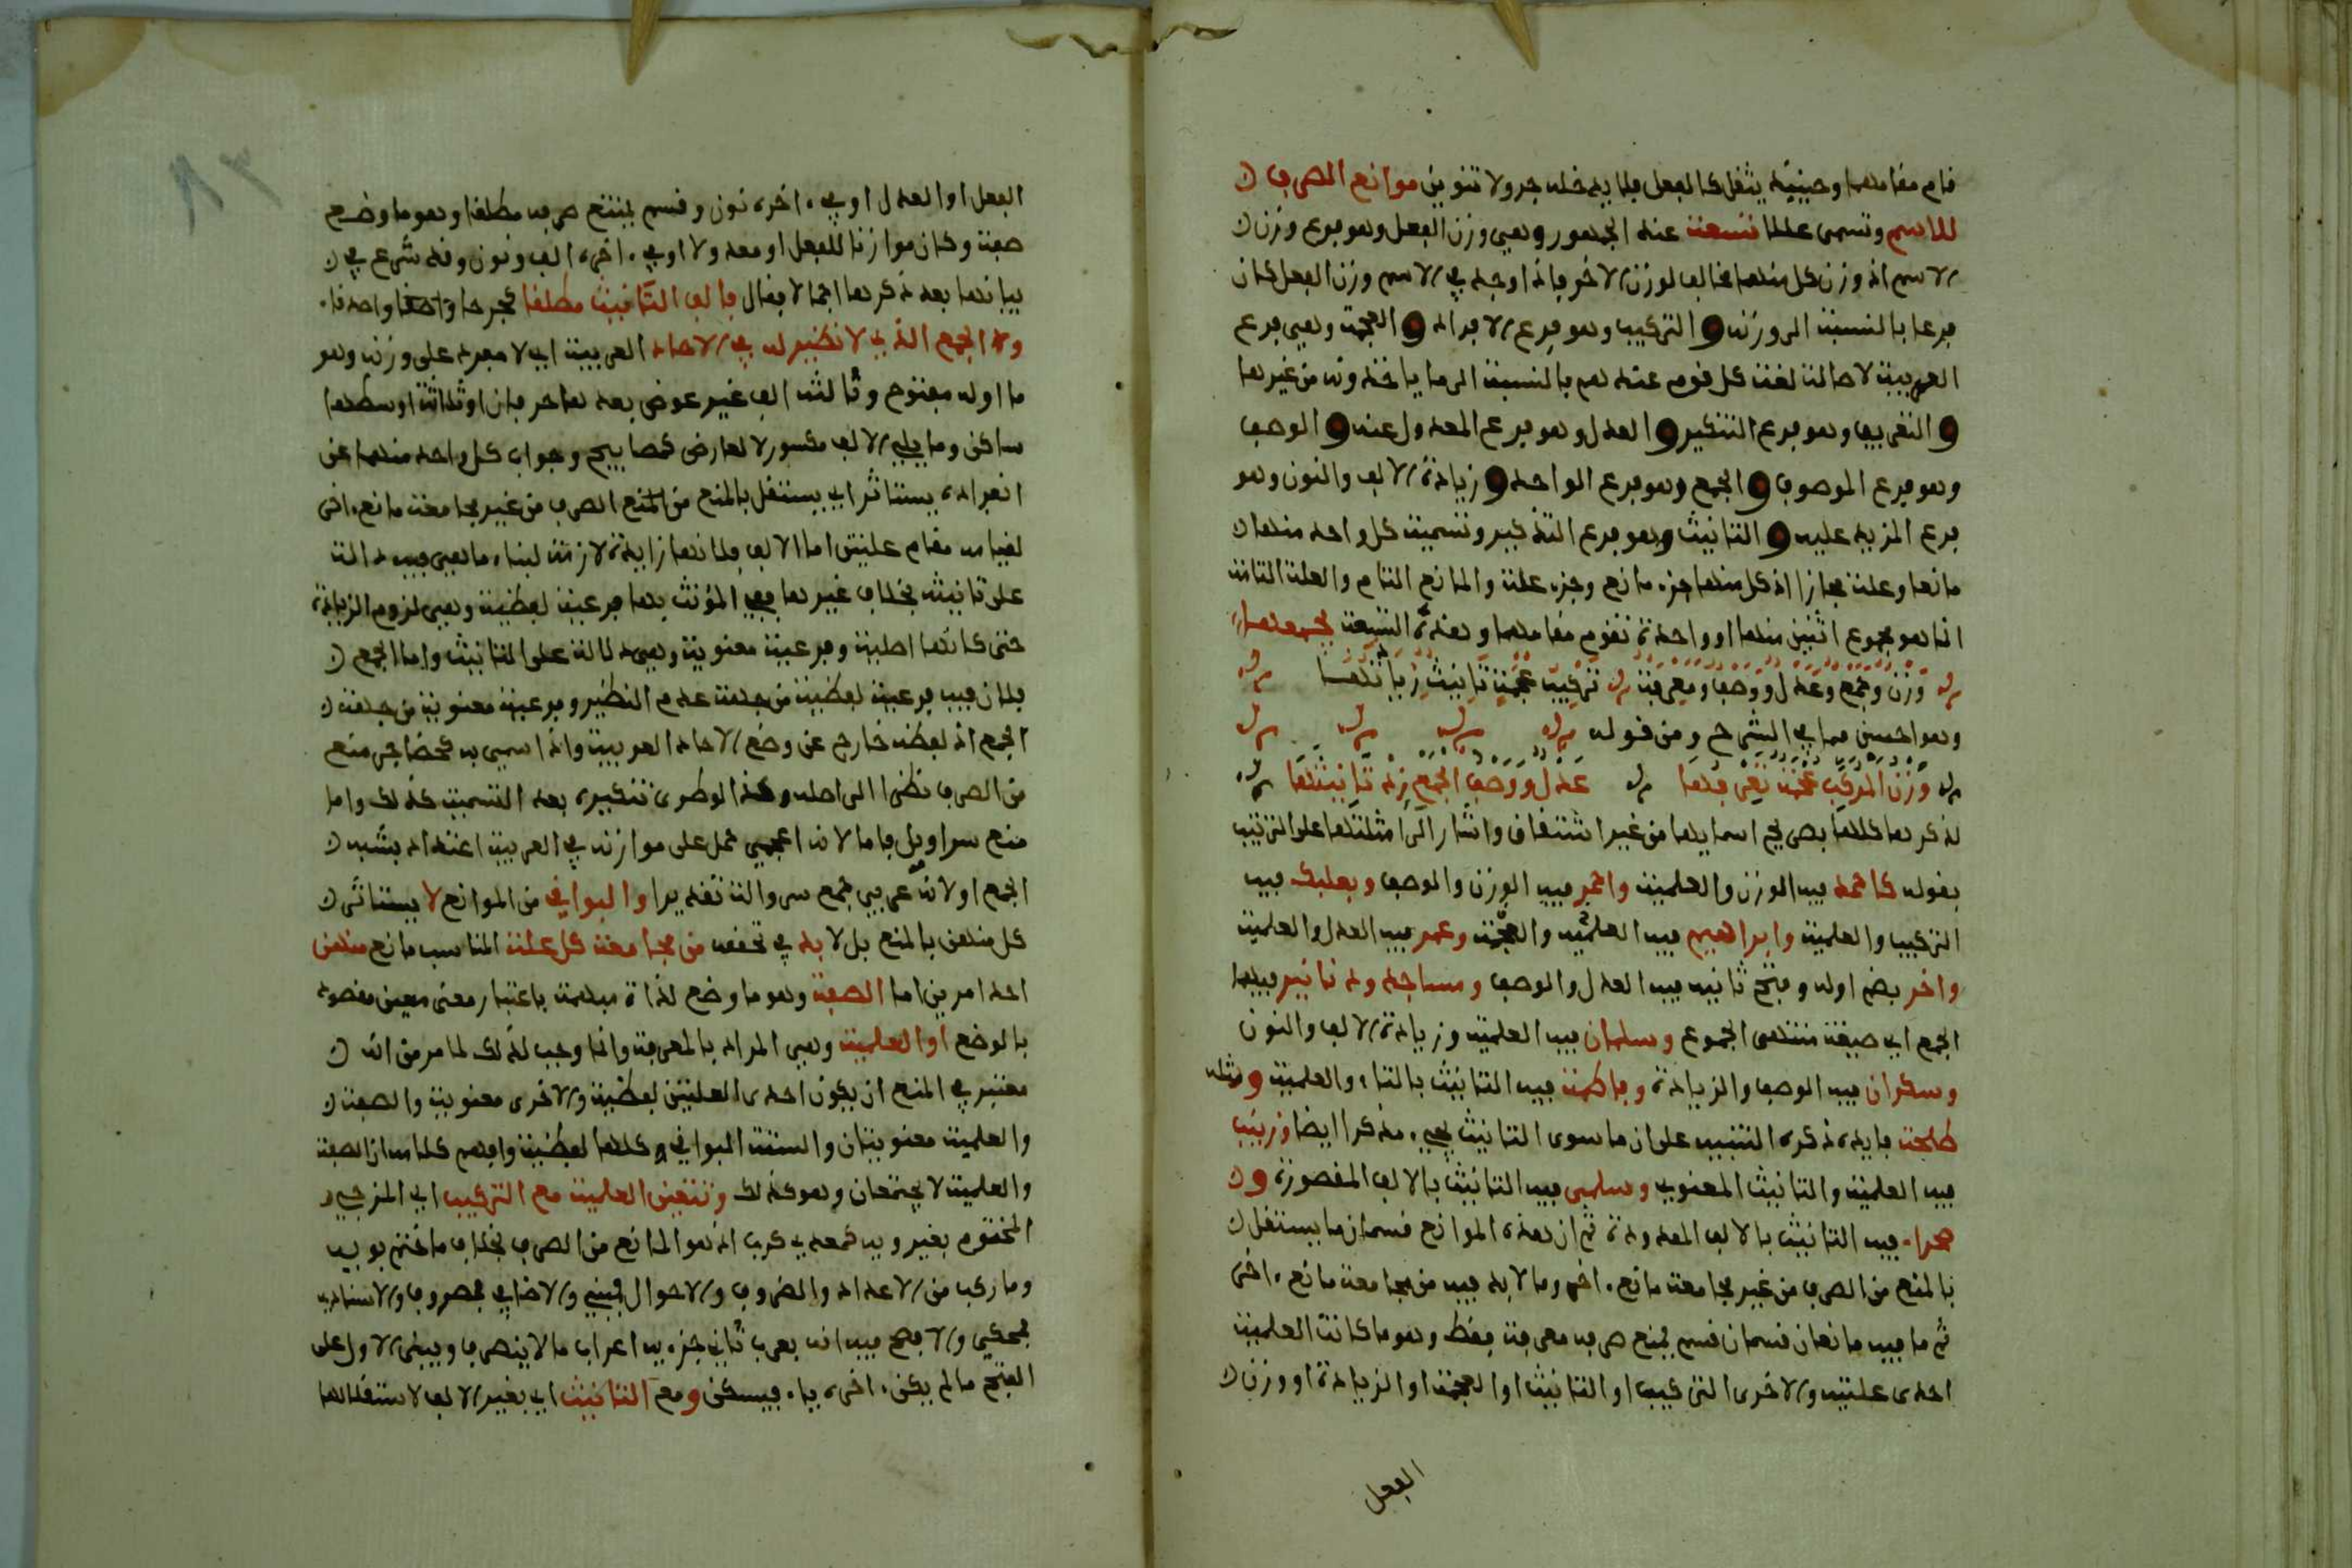 قام مقامهما وحينيذ يثقل كالفعل فلا يدخله جر ولا تنوين موانع الصرف
للاسم وتسمى عللا تسعة عند الجمهور وهي وزن الفعل وهو فرع وزن
الاسم اذ وزن كل منهما مخالف لوزن الاخر فاذا وجد في الاسم وزن الفعل كان
فرعا بالنسبة الى وزنه و التركيب وهو فرع الافراد و العجمة وهي فرع
العربية لاصالة لغة كل قوم عندهم بالنسبة الى ما ياخذونه من غيرها
و التعريف وهو فرع التنكير و العدل وهو فرع المعدول عنه و الوصف
وهو فرع الموصوف و الجمع وهو فرع الواحد و زيادة الالف والنون وهو
فرع المزيد عليه و التانيث وهو فرع التذكير وتسمية كل واحد منها
مانعا وعلة مجازا اذ كل منها جزء مانع وجزء علة والمانع التام والعلة التامة
انما هو مجموع اثنين منها او واحدة تقوم مقامهما وهذه التسعة يجمعها
وزن وجمع وعدل ووصف ومعرفة تركيب عجمة تانيث زيادتها
وهو احسن مما في الشرح ومن قوله
وزن المركب عجمة تعريفها عدل ووصف الجمع زد تانيثها
لذكرها كلها بصريح اسمايها من غير اشتقاق واشار الى امثلتها على الترتيب
بقوله كاحمد فيه الوزن والعلمية واحمر فيه الوزن والوصف وبعلبك فيه
التركيب والعلمية وابراهيم فيه العلمية والعجمة وعمر فيه العدل والعلمية
واخر بضم اوله وفتح ثانيه فيه العدل والوصف ومساجد ودنانير فيهما
الجمع اي صيغة منتهى الجموع وسلمان فيه العلمية وزيادة الالف والنون
وسكران فيه الوصف والزيادة وفاطمة فيه التانيث بالتاء والعلمية ومثله
طلحة فايدة ذكره التنبيه على ان ما سوى التانيث يجيء مذكرا ايضا وزينب
فيه العلمية والتانيث المعنوي وسلمى فيه التانيث بالالف المقصورة و
صحراء فيه التانيث بالالف الممدودة ثم ان هذه الموانع قسمان ما يستقل
بالمنع من الصرف من غير مجامعة مانع اخر وما لابد فيه من مجامعة مانع اخر
ثم ما فيه مانعان قسمان قسم يمنع صرفه معرفة فقط وهو ما كانت العلمية
احدى علتيه والاخرى التركيب او التانيث او العجمة او الزيادة او وزن
الفعل
الفعل او العدل او في اخره نون وقسم يمتنع صرفه مطلقا وهو ما وضع
صفة وكان موازنا للفعل او معدولا او في اخره الف ونون وقد شرع في
بيانها بعد ذكرها اجمالا فقال فالف التانيث مطلقا كجرحا واصدقا
والجمع الذي لا نظير له في الاحاد العربية اي لا مفرد على وزنه وهو
ما اوله مفتوح وثالثه الف غير عوض بعدها حرفان او ثلاثة اوسطها
ساكن وما يلي الالف مكسور لا لعارض كمصابيح وجواب كل واحد منهما عن
انفراده يستاثر اي يستقل بالمنع من الصرف من غير مجامعة مانع اخر
لقيامه مقام علتين اما الالف فلانها زايدة لازمة لبناء ما هي فيه دالة
على تانيثه بخلاف غيرها ففي المؤنث بها فرعية لفظية وهي لزوم الزيادة
حتى كانها اصلية وفرعية معنوية وهي دلالة على التانيث واما الجمع
فلان فيه فرعية لفظية من جهة عدم النظير وفرعية معنوية من جهة
الجمع اذ لفظه خارج عن وضع الاحاد العربية واذا سمي به كحضاجر منع
من الصرف نظرا الى اصله وكذا لو طرى تنكيره بعد التسمية كذلك واما
منع سراويل فاما لانه اعجمي حمل على موازنه في العربية اعتدادا بشبه
الجمع او لانه عربي جمع سروالة تقديرا والبواقي من الموانع لا يستاثر
كل منهن بالمنع بل لا بد في تحققه من مجامعة كل علة المناسب مانع منهن
احد امرين اما الصفة وهو ما وضع لذات مبهمة باعتبار معنى معين مقصود
بالوضع او العلمية وهي المراد بالمعرفة وانما وجب لذلك لما مر من انه
معتبر في المنع ان يكون احدى العلتين لفظية والاخرى معنوية والصفة
والعلمية معنويتان والستة البواقي كلها لفظية وافهم كلامه ان الصفة
والعلمية لا يجتمعان وهو كذلك وتتعين العلمية مع التركيب اي المزجي
المختوم بغير ويه كمعدي كرب اذ هو المانع من الصرف بخلاف ما ختم بويه
وما ركب من الاعداد والظروف والاحوال فمبني والاضافي فمصروف والاسنادي
فمحكي والافصح فيه انه يعرب ثاني جزءيه اعراب ما لا ينصرف ويبنى الاول على
الفتح ما لم يكن اخره ياء فيسكن ومع التانيث اي بغير الالف لاستقلالها